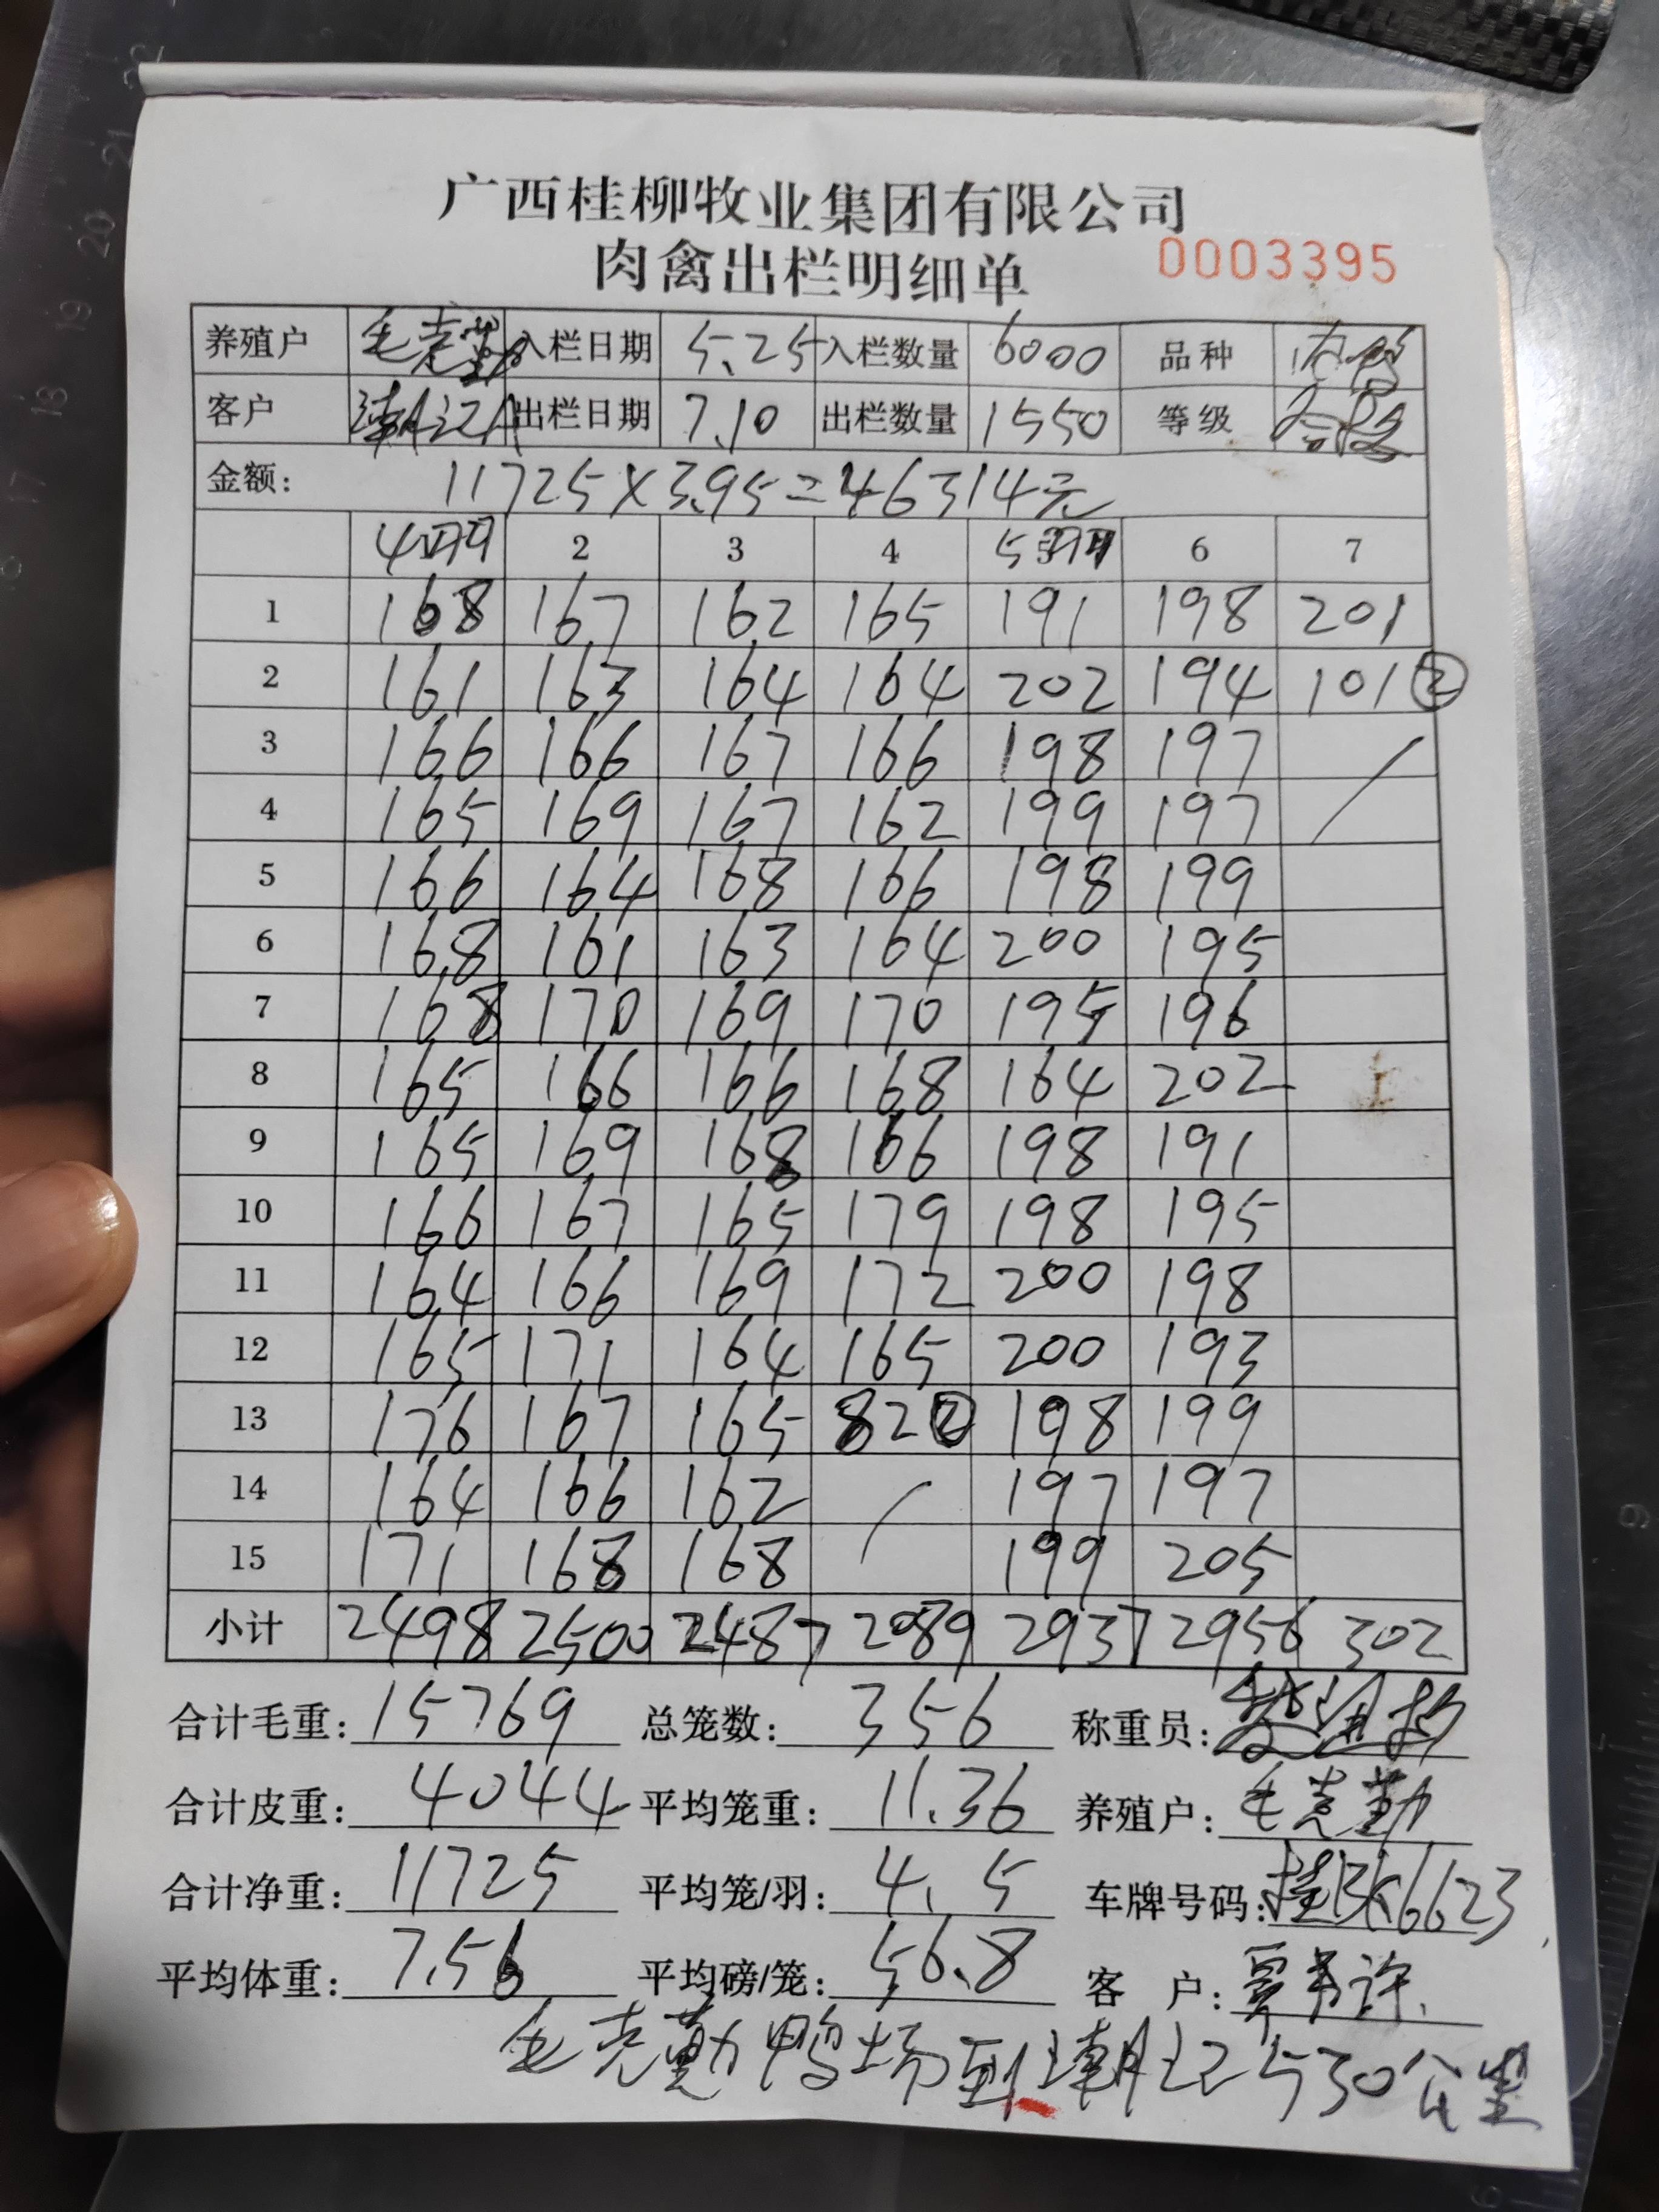 广西桂柳牧业集团有限公司
肉禽出栏明细单 0003395
养殖户 毛克勤 入栏日期 5.25 入栏数量 6000 品种 肉鸭
客户 潮江 出栏日期 7.10 出栏数量 1550 等级 合格
金额: 11725×3.95=46314元
2 3 4 6 7
1 168 167 162 165 191 198 201
2 161 163 164 164 202 194 101②
3 166 166 167 166 198 197 /
4 165 169 167 162 199 197
5 166 164 168 166 198 199
6 168 161 163 164 200 195
7 168 170 169 170 195 196
8 165 166 166 168 164 202
9 165 169 168 166 198 191
10 166 167 165 179 198 195
11 164 166 169 172 200 198
12 165 171 164 165 200 193
13 176 167 165 82② 198 199
14 164 166 162 / 197 197
15 171 168 168 199 205
小计 2498 2500 2487 2089 2937 2956 302
合计毛重: 15769 总笼数: 356 称重员:
合计皮重: 4044 平均笼重: 11.36 养殖户: 毛克勤
合计净重: 11725 平均笼/羽: 4.5 车牌号码: 6623
平均体重: 7.56 平均磅/笼: 56.8 客 户:
毛克勤鸭场到潮江530公里